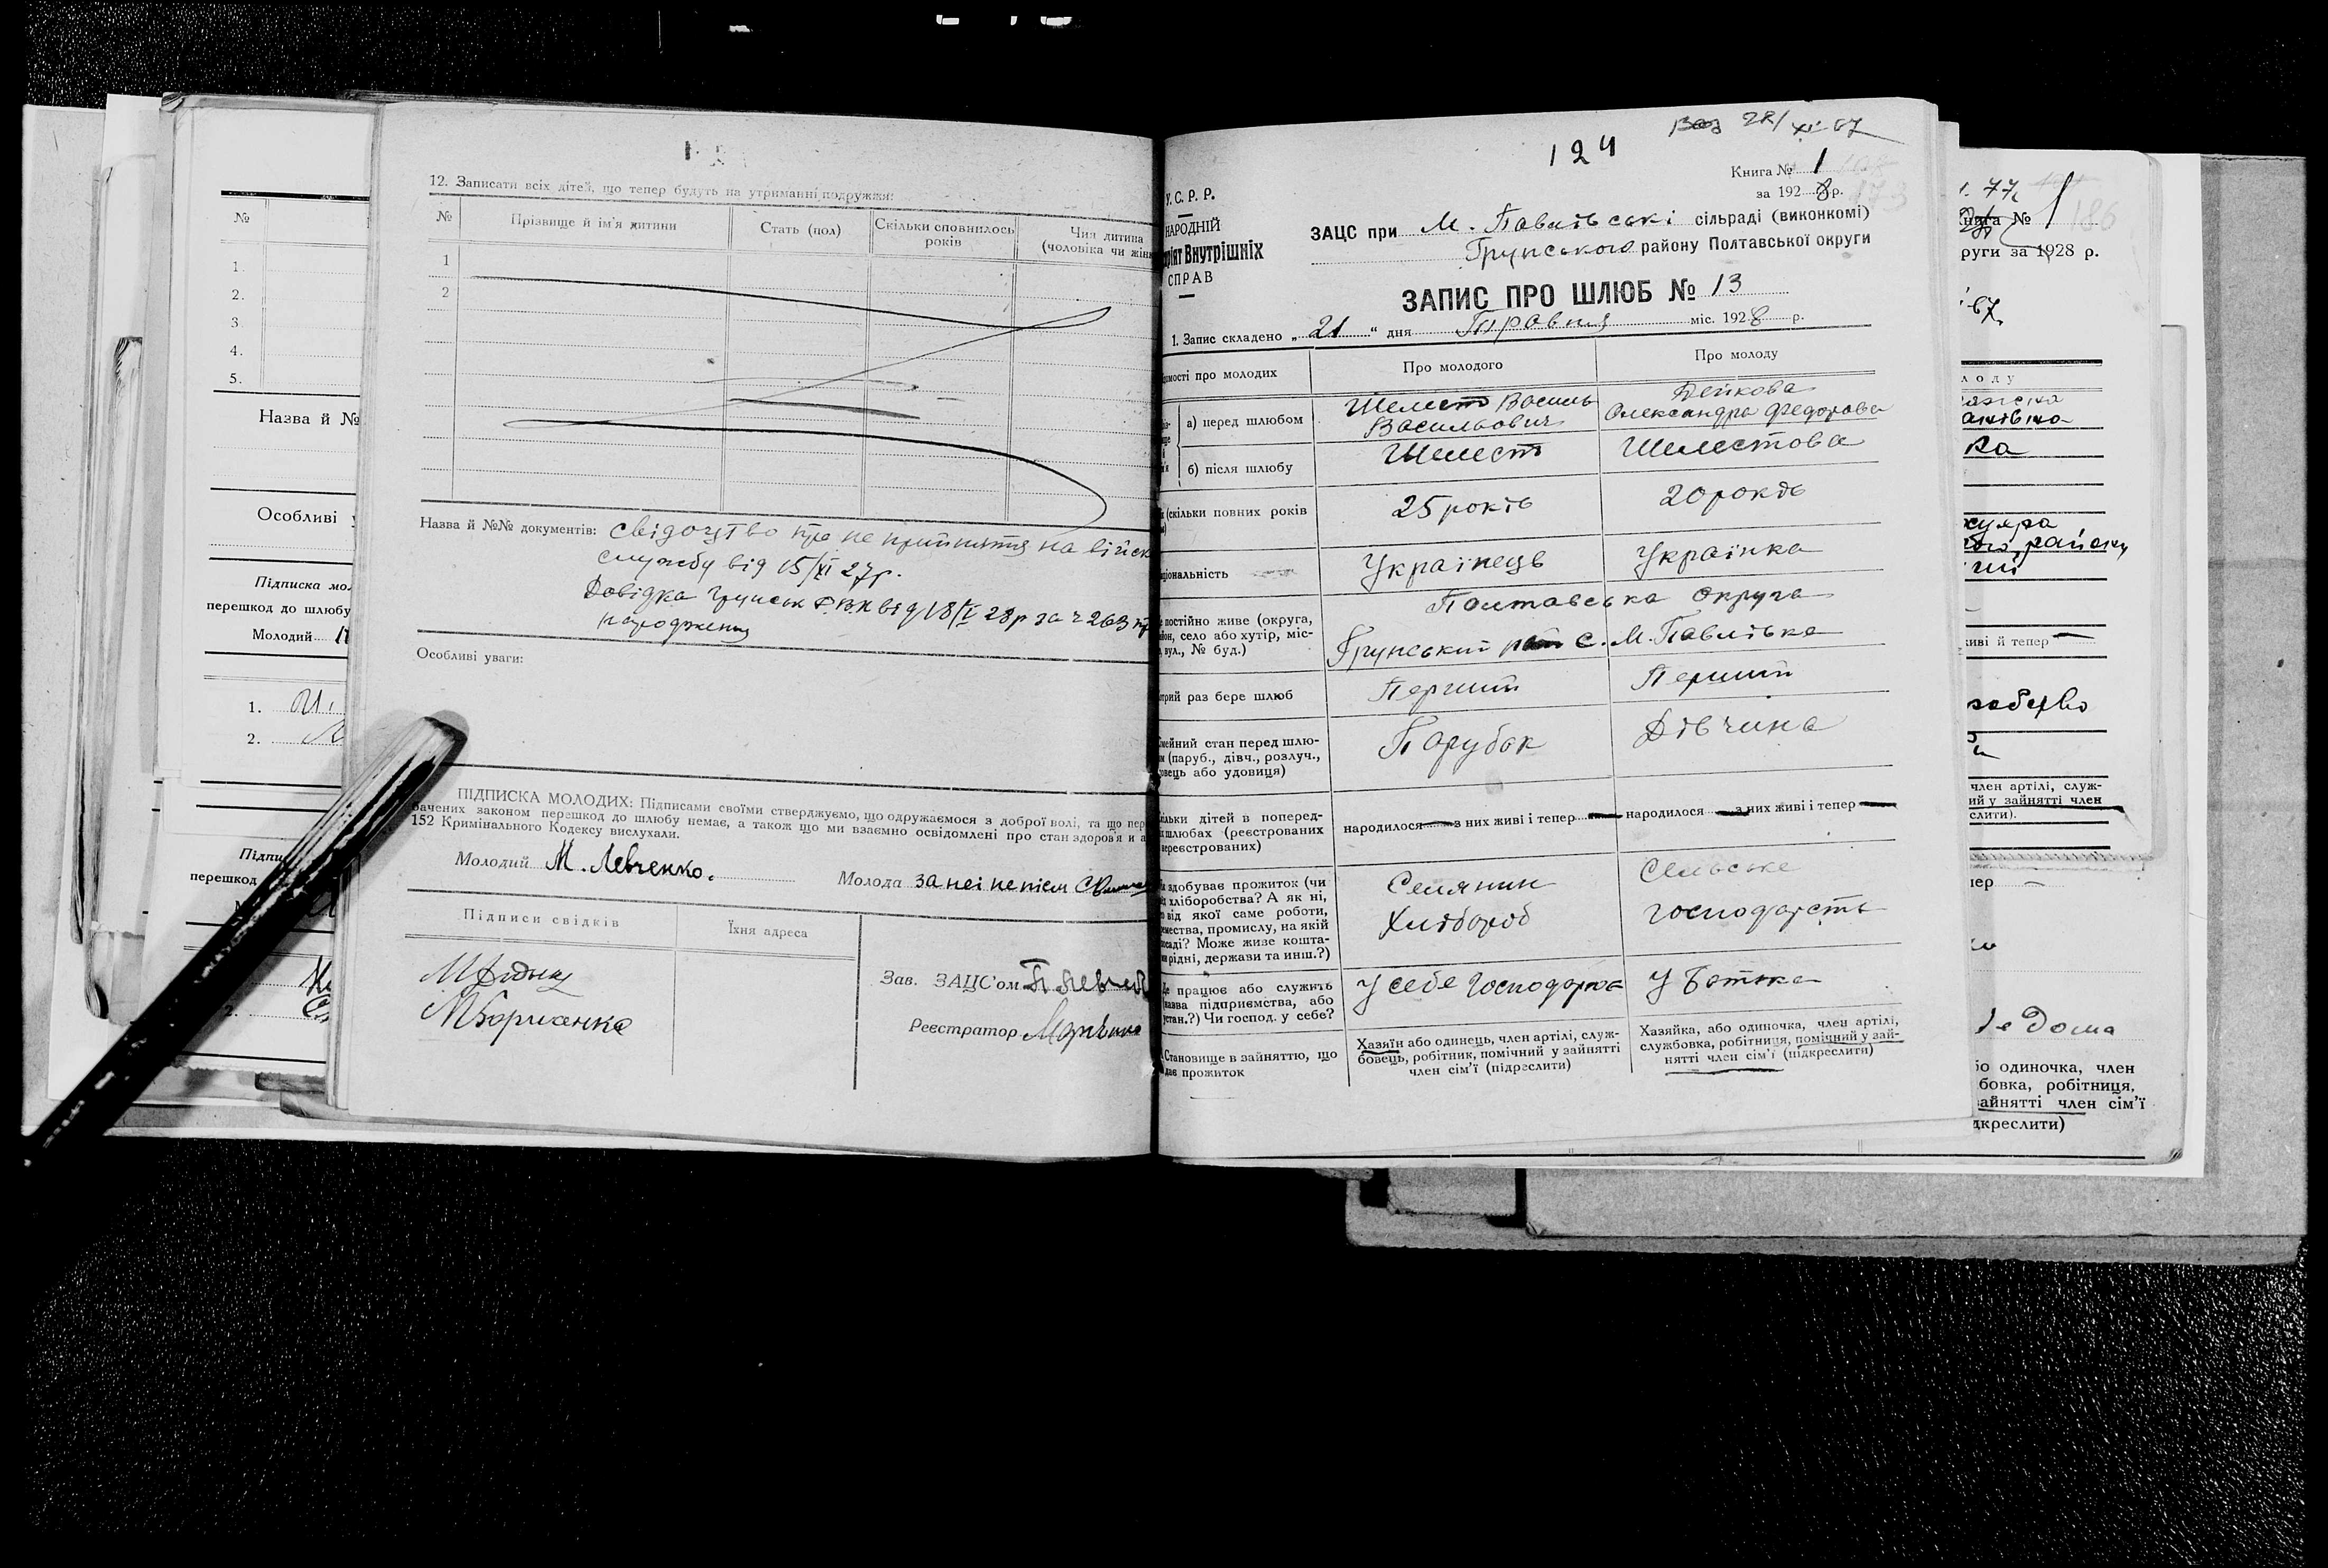 12. Записати всіх дітей, що тепер будуть на утриманні подружжя:
№ Прізвище й ім'я дитини Стать (пол) Скільки сповнилось років Чия дитина (чоловіка чи жін
1
2
Назва й №№ документів: свідоцтво про не прийняття на військ
службу від 15/XI 27р.
Довідка Грунськ Р.В.К від 18/V 28р за ч 263 пр
народження
Особливі уваги:
ПІДПИСКА МОЛОДИХ: Підписами своїми стверджуємо, що одружаємося з доброї волі, та що пер
бачених законом перешкод до шлюбу немає, а також що ми взаємно освідомлені про стан здоров'я и а
152 Кримінального Кодексу вислухали.
Молодий М. Левченко. Молода за неї непісм
Підписи свідків Їхня адреса
Зав. ЗАЦС'ом
Реєстратор
№
1.
2.
3.
4.
5.
Назва й №
Особливі у
Підписка мол
перешкод до шлюбу
Молодий
1.
2.
Підпи
перешкод
2.
124
28/XI-67
У.С.Р.Р.
НАРОДНІЙ
ріят Внутрішніх
СПРАВ
Книга № 1
за 1928 р.
ЗАЦС при М. Павлівські сільраді (виконкомі)
Грунського району Полтавської округи
ЗАПИС ПРО ШЛЮБ № 13
1. Запис складено „21“ дня Травня міс. 1928 р.
мості про молодих Про молодого Про молоду
а) перед шлюбом Шелест Василь Васильович Дейкова Олександра Федорова
б) після шлюбу Шелест Шелестова
(скільки повних років 25 років 20 років
ціональність Українець Українка
постійно живе (округа, Полтавська округа
йон, село або хутір, міс-
вул., № буд.) Грунський рай с. М. Павлівка
отрий раз бере шлюб Перший Перший
мейний стан перед шлю-
м (паруб., дівч., розлуч.,
овець або удовиця) Парубок Дівчина
ільки дітей в поперед-
шлюбах (реєстрованих
вереєстрованих) народилося — з них живі і тепер — народилося — з них живі і тепер —
здобуває прожиток (чи
хліборобства? А як ні,
від якої саме роботи,
емества, промислу, на якій
осаді? Може живе кошта-
рідні, держави та инш.?) Селянин Хлібороб Сельське господарсть
е працює або служить
назва підприємства, або
устан.?) Чи господ. у себе? У себе господарює У Батька
Становище в зайняттю, що
дає прожиток Хазяїн або одинець, член артілі, служ-
бовець, робітник, помічний у зайнятті
член сім'ї (підреслити)
Хазяйка, або одиночка, член артілі,
службовка, робітниця, помічний у зай-
нятті член сім'ї (підкреслити)
нига № 1
руги за 1928 р.
67.
лоду
ка
живі й тепер —
член артілі, служ-
ий у зайнятті член
слити).
пер —
Дома
бо одиночка, член
бовка, робітниця,
зайнятті член сім'ї
дкреслити)